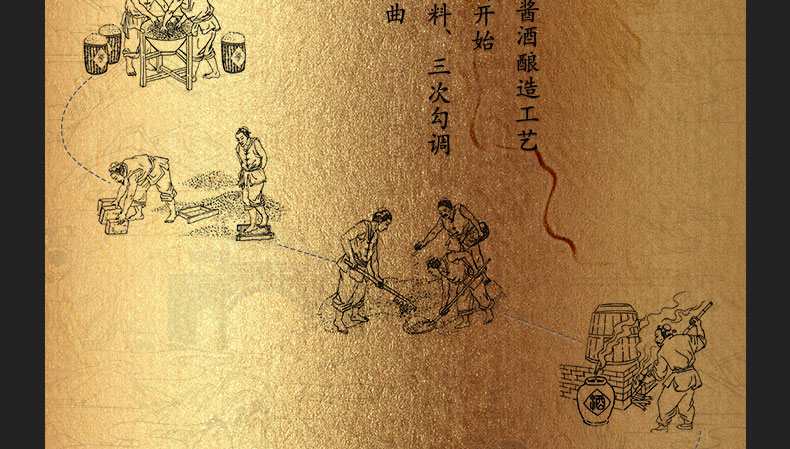 酱酒酿造工艺
开始
料、三次勾调
曲
酒
酒
酒